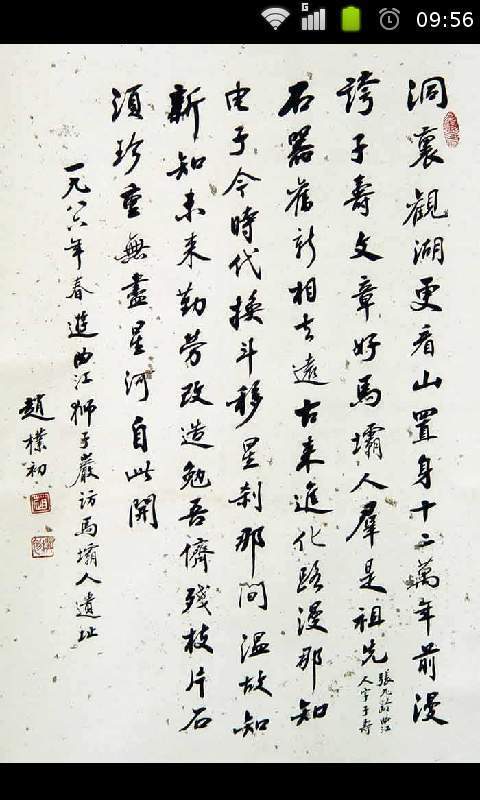 09:56
G
洞裏觀湖更看山置身十二萬年前漫
誇子壽文章好馬壩人羣是祖先
張九齡曲江
人字子壽
石器舊新相去遠古来進化路漫那知
电子令時代換斗移星刹那间溫故知
新知未来勤劳改造勉吾儕殘枝片石
須珍重無盡星河自此開
一九八六年春遊曲江獅子巖访馬壩人遺址
趙樸初